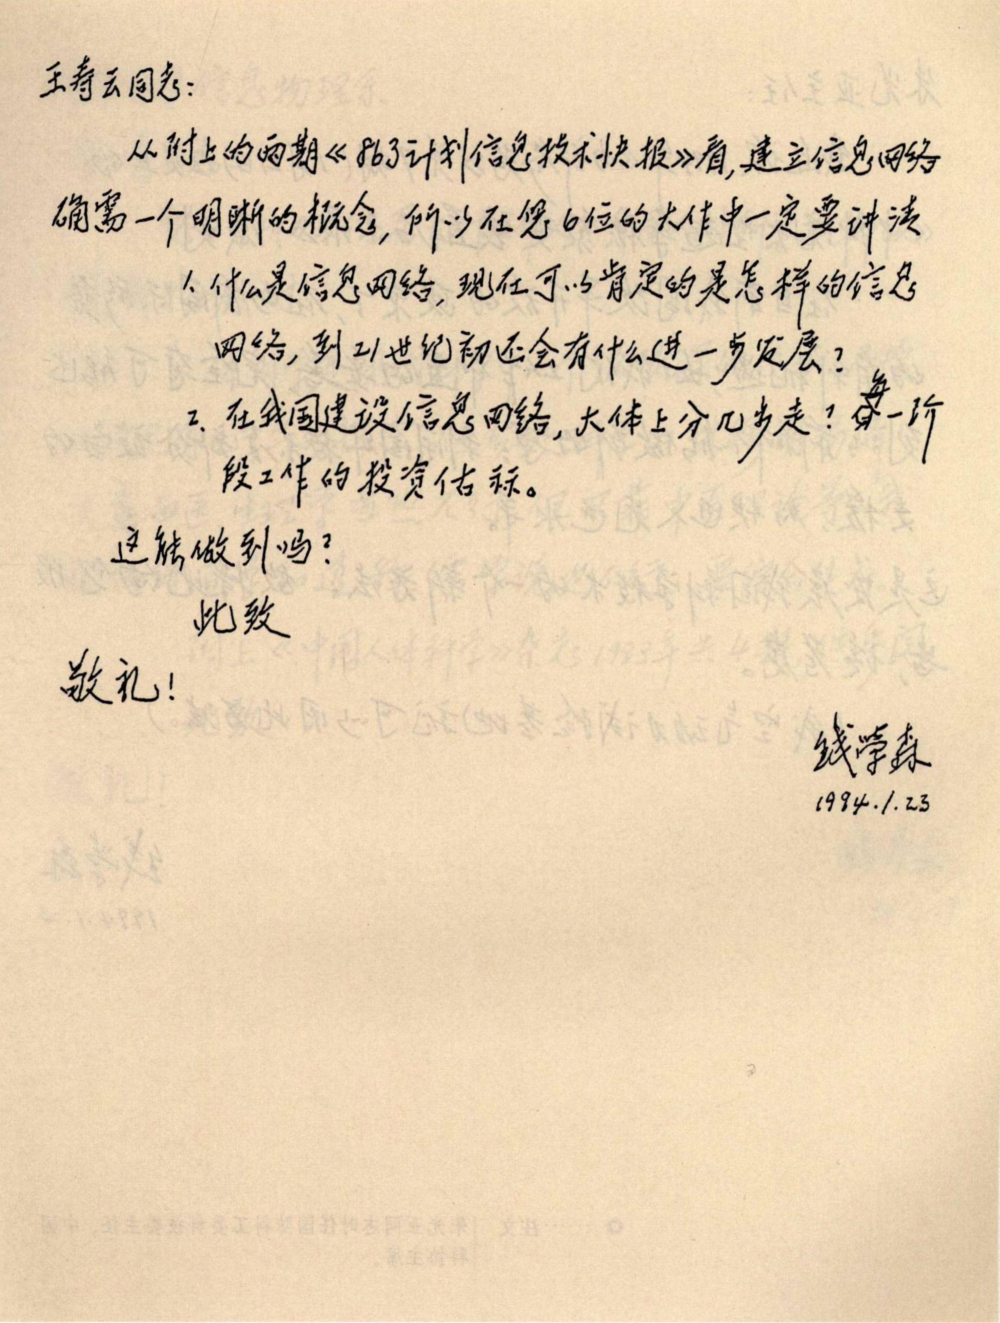 王寿云同志：
从附上的两期《863计划信息技术快报》看，建立信息网络
确需一个明晰的概念，所以在您6位的大作中一定要讲清
1. 什么是信息网络，现在可以肯定的是怎样的信息
网络，到21世纪初还会有什么进一步发展？
2. 在我国建设信息网络，大体上分几步走？每一阶
段工作的投资估标。
这能做到吗？
此致
敬礼！
钱学森
1994.1.23